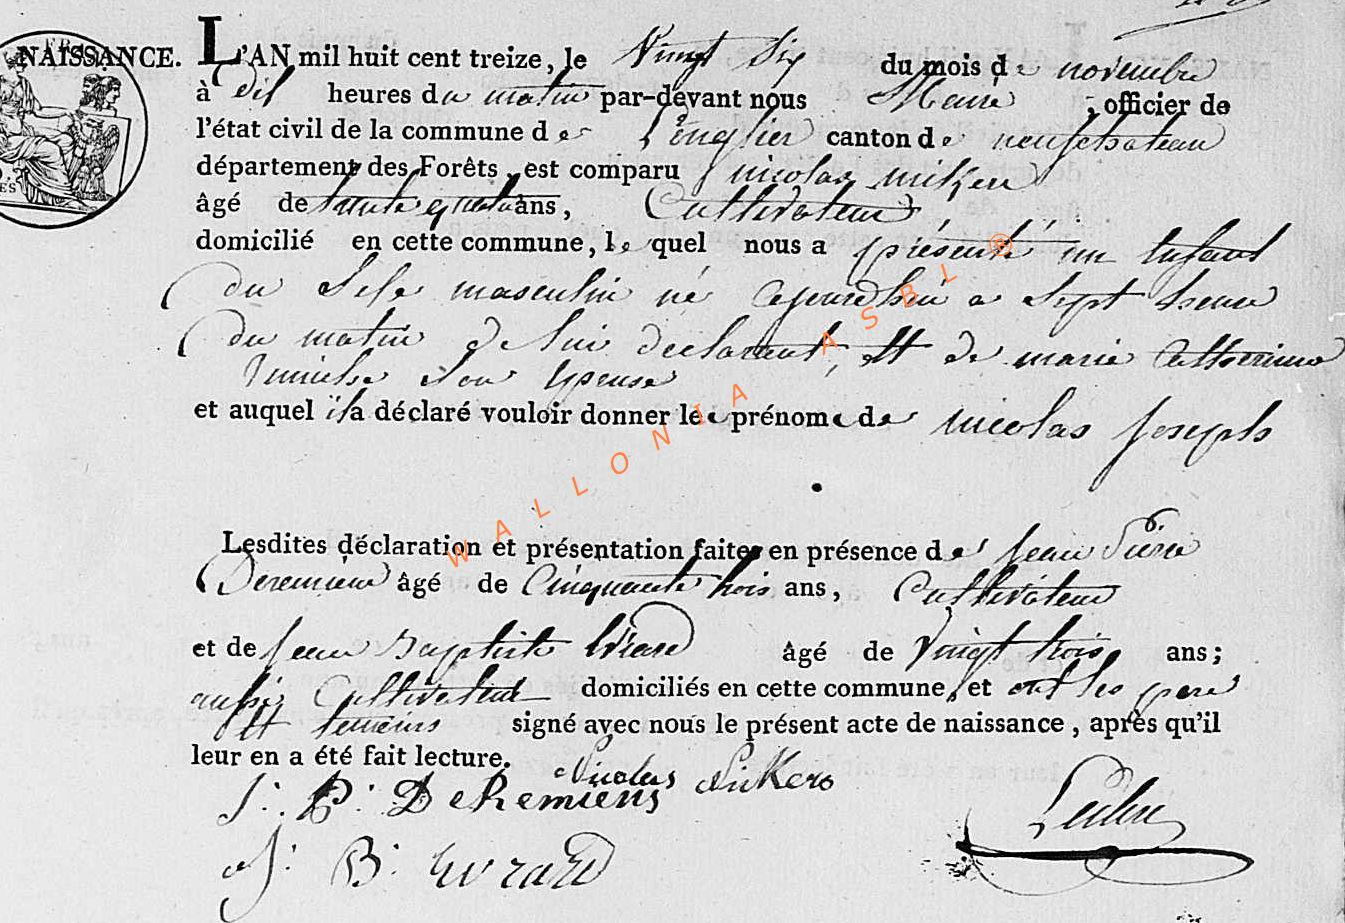 NAISSANCE. L'AN mil huit cent treize, le Vingt Six du mois de novembre
à dix heures du matin par-devant nous Maire, officier de
l'état civil de la commune de Longlier canton de neufchateau
département des Forêts, est comparu nicolas
âgé de trente quatre ans, Cultivateur
domicilié en cette commune, lequel nous a présenté un Enfant
du Sexe masculin né aujourdhui a Sept heure
du matin de lui declarant, Et de marie Catherine
Son Epouse
et auquel il a déclaré vouloir donner le prénom de nicolas Joseph
Lesdites déclaration et présentation faites en présence de Jean Piere
Deremiens âgé de Cinquante trois ans, Cultivateur
et de Jean Baptiste Evrard âgé de Vingt trois ans;
aussi Cultivateur domiciliés en cette commune, et ont les pere
Et temoins signé avec nous le présent acte de naissance, après qu'il
leur en a été fait lecture.
Nicolas
J: P: DeRemiens
J: B: Evrard
WALLONIA ASBL ®